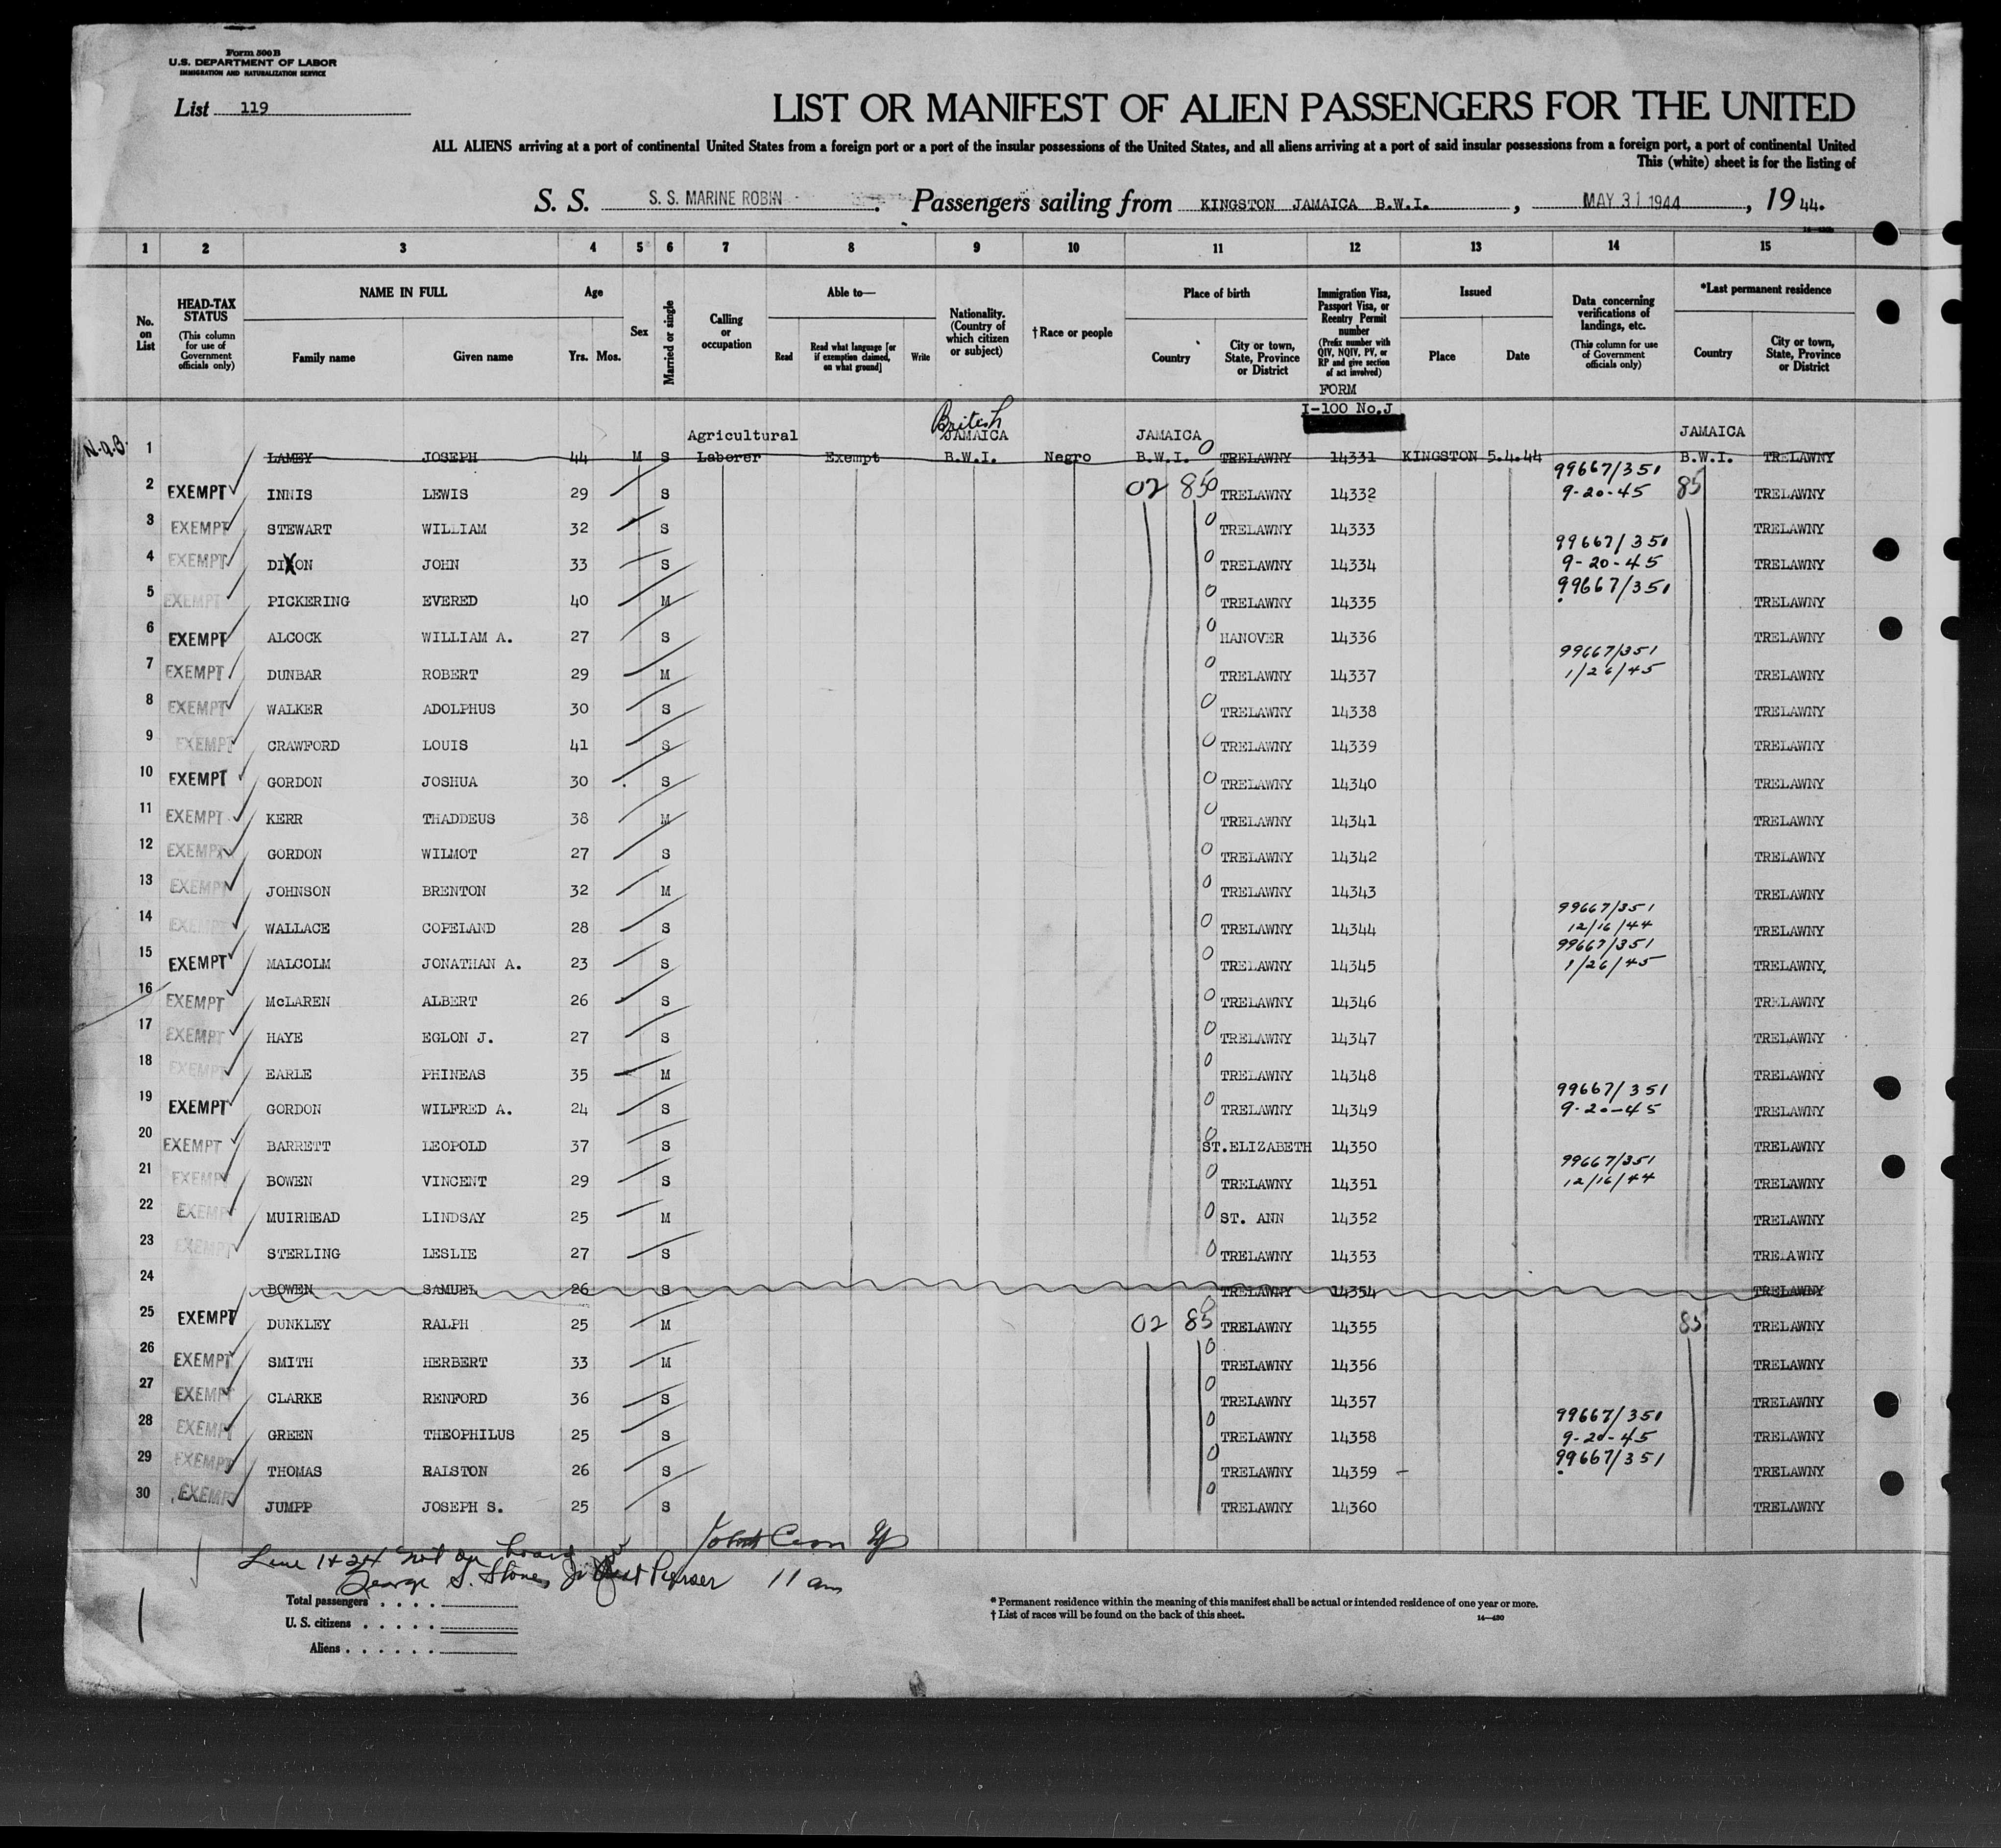 Form 500B
U.S. DEPARTMENT OF LABOR
IMMIGRATION AND NATURALIZATION SERVICE
List 119
LIST OR MANIFEST OF ALIEN PASSENGERS FOR THE UNITED
ALL ALIENS arriving at a port of continental United States from a foreign port or a port of the insular possessions of the United States, and all aliens arriving at a port of said insular possessions from a foreign port, a port of continental United
This (white) sheet is for the listing of
S. S. S. S. MARINE ROBIN. Passengers sailing from KINGSTON JAMAICA B.W.I., MAY 31 1944, 19 44.
1 2 3 4 5 6 7 8 9 10 11 12 13 14 15
No. on List
HEAD-TAX STATUS (This column for use of Government officials only)
NAME IN FULL Family name Given name
Age Yrs. Mos.
Sex
Married or single
Calling or occupation
Able to— Read Read what language [or if exemption claimed, on what ground] Write
Nationality. (Country of which citizen or subject)
† Race or people
Place of birth Country City or town, State, Province or District
Immigration Visa, Passport Visa, or Reentry Permit number (Prefix number with QIV, NQIV, PV, or RP and give section of act involved)
FORM I-100 No.J
Issued Place Date
Data concerning verifications of landings, etc. (This column for use of Government officials only)
*Last permanent residence Country City or town, State, Province or District
British
N.O.B. 1 LAMEY JOSEPH 44 M S Agricultural Laborer Exempt JAMAICA B.W.I. Negro JAMAICA B.W.I. 0 TRELAWNY 14331 KINGSTON 5.4.44 JAMAICA B.W.I. TRELAWNY
2 EXEMPT INNIS LEWIS 29 S 02 85 0 TRELAWNY 14332 99667/351 9-20-45 85 TRELAWNY
3 EXEMPT STEWART WILLIAM 32 S 0 TRELAWNY 14333 TRELAWNY
4 EXEMPT DIXON JOHN 33 S 0 TRELAWNY 14334 99667/351 9-20-45 TRELAWNY
5 EXEMPT PICKERING EVERED 40 M 0 TRELAWNY 14335 99667/351 TRELAWNY
6 EXEMPT ALCOCK WILLIAM A. 27 S 0 HANOVER 14336 TRELAWNY
7 EXEMPT DUNBAR ROBERT 29 M 0 TRELAWNY 14337 99667/351 1/26/45 TRELAWNY
8 EXEMPT WALKER ADOLPHUS 30 S 0 TRELAWNY 14338 TRELAWNY
9 EXEMPT CRAWFORD LOUIS 41 S 0 TRELAWNY 14339 TRELAWNY
10 EXEMPT GORDON JOSHUA 30 S 0 TRELAWNY 14340 TRELAWNY
11 EXEMPT KERR THADDEUS 38 M 0 TRELAWNY 14341 TRELAWNY
12 EXEMPT GORDON WILMOT 27 S 0 TRELAWNY 14342 TRELAWNY
13 EXEMPT JOHNSON BRENTON 32 M 0 TRELAWNY 14343 TRELAWNY
14 EXEMPT WALLACE COPELAND 28 S 0 TRELAWNY 14344 99667/351 12/16/44 TRELAWNY
15 EXEMPT MALCOLM JONATHAN A. 23 S 0 TRELAWNY 14345 99667/351 1/26/45 TRELAWNY,
16 EXEMPT McLAREN ALBERT 26 S 0 TRELAWNY 14346 TRELAWNY
17 EXEMPT HAYE EGLON J. 27 S 0 TRELAWNY 14347 TRELAWNY
18 EXEMPT EARLE PHINEAS 35 M 0 TRELAWNY 14348 TRELAWNY
19 EXEMPT GORDON WILFRED A. 24 S 0 TRELAWNY 14349 99667/351 9-20-45 TRELAWNY
20 EXEMPT BARRETT LEOPOLD 37 S 0 ST.ELIZABETH 14350 TRELAWNY
21 EXEMPT BOWEN VINCENT 29 S 0 TRELAWNY 14351 99667/351 12/16/44 TRELAWNY
22 EXEMPT MUIRHEAD LINDSAY 25 M 0 ST. ANN 14352 TRELAWNY
23 EXEMPT STERLING LESLIE 27 S 0 TRELAWNY 14353 TRELAWNY
24 BOWEN SAMUEL 26 S TRELAWNY 14354 TRELAWNY
25 EXEMPT DUNKLEY RALPH 25 M 02 85 0 TRELAWNY 14355 85 TRELAWNY
26 EXEMPT SMITH HERBERT 33 M 0 TRELAWNY 14356 TRELAWNY
27 EXEMPT CLARKE RENFORD 36 S 0 TRELAWNY 14357 TRELAWNY
28 EXEMPT GREEN THEOPHILUS 25 S 0 TRELAWNY 14358 99667/351 9-20-45 TRELAWNY
29 EXEMPT THOMAS RALSTON 26 S 0 TRELAWNY 14359 99667/351 TRELAWNY
30 EXEMPT JUMPP JOSEPH S. 25 S 0 TRELAWNY 14360 TRELAWNY
Line 1 & 24 not on board
George S. Stone, Jr Purser 11 am
Total passengers
U. S. citizens
Aliens
* Permanent residence within the meaning of this manifest shall be actual or intended residence of one year or more.
† List of races will be found on the back of this sheet.
14—430